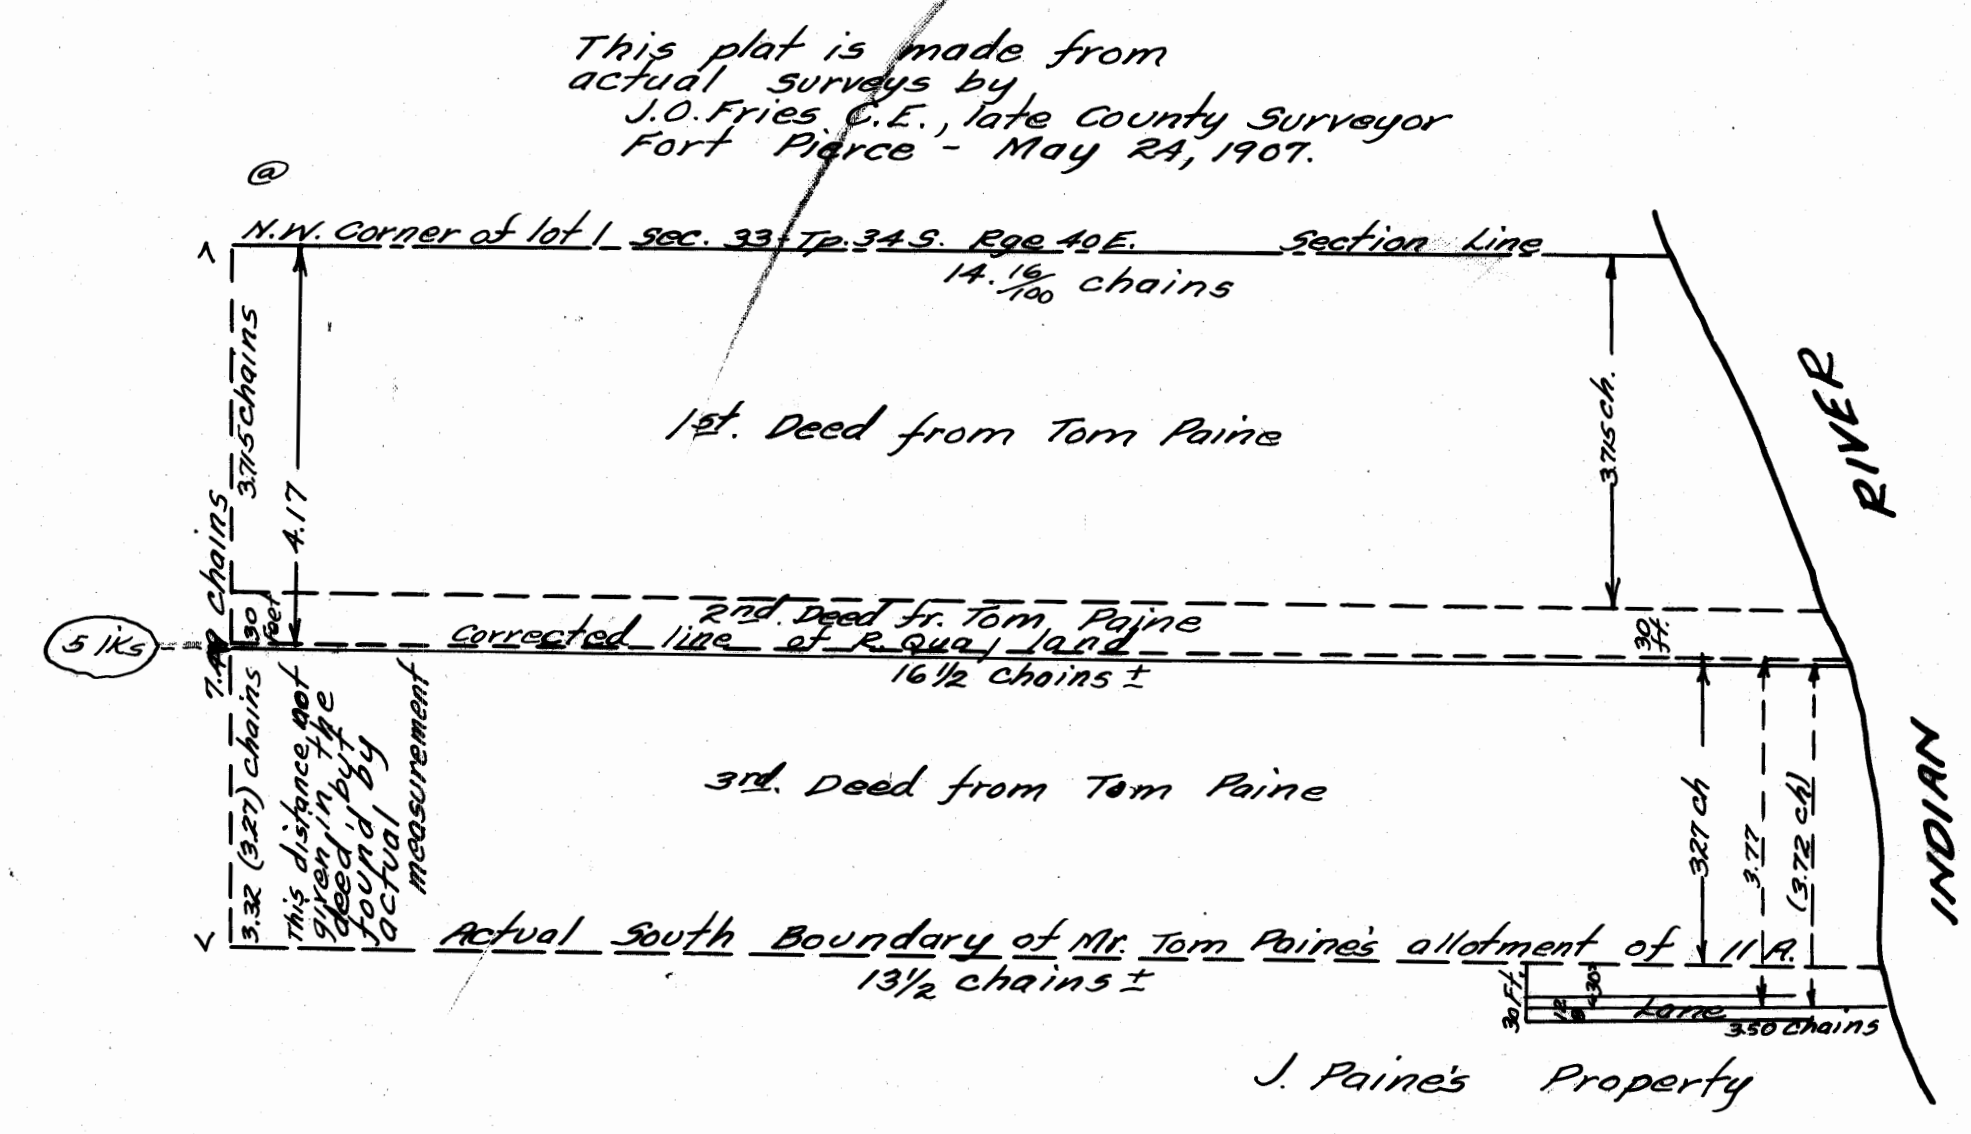 This plat is made from
actual surveys by
J.O. Fries C.E., late County Surveyor
Fort Pierce - May 24, 1907.
@
N.W. Corner of lot 1 sec. 33 - Tp. 34 S. Rge 40 E. Section Line
14. 16/100 chains
3.715 chains
4.17
1st. Deed from Tom Paine
3.715 ch.
RIVER
7.49 chains
30 Feet
2nd. Deed fr. Tom Paine
Corrected line of R. Qua, land
30 ft.
5 lKs
16 1/2 chains ±
3.32 (3.27) chains
This distance not
given in the
deed, but
found by
actual
measurement
3rd. Deed from Tom Paine
3.27 ch
3.77
(3.72 ch)
INDIAN
Actual South Boundary of Mr. Tom Paine's allotment of 11 A.
13 1/2 chains ±
30 Ft.
30
12
Lane
3.50 Chains
J. Paine's Property